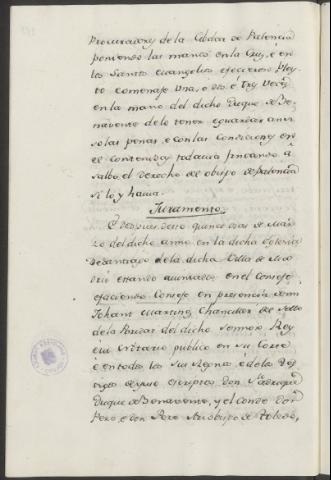 Procuradores de la Cibdat de Palencia
poniendo las manos en la Cruz, é en
los Santos Evangelios eficieron Pley-
to omenaje una, e dos é tres veces
en la mano del dicho Duque de Be-
navente de lo tener eguardar ansi
so las penas, e con las Condiciones en
el contenidas todavia fincando á
salbo el derecho del obispo de palencia
si lo y havia.
Juramento.
É despues desto quince dias de Mar-
zo del dicho anno en la dicha Eglesia
de Santiago de la dicha Villa de Ma-
drit estando ayuntados en el Consejo
efaciendo Consejo en presencia de mi
Johant Martinez Chanciller del Sello
de la Puridat del dicho Sennor Rey
é su Notario publico en su Corte
é en todos los sus Regnos é de los Tes-
tigos de yuso escriptos don Fadrique
Duque de Benavente, y el Conde don
Pero, é don Pero Arzobispo de Toledo,